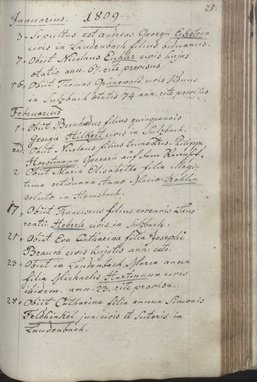 23.
Januarius. 1809.
3. Sepultus est andreas Georgii Eberstein
civis in Laudenbach filius biduanus.
7. Obiit Nicolaus Eichler civis hujas
ætatis ann. 67. rite provisus.
16. Obiit Thomas Grünewald civis
in Sulzbach ætatis 74. ann. rite provisus.
Februarius
1. Obiit Bernhardus filius quinquennis
Georgii Hilkert civis in Sulzbach.
eod. Obiit Nicolaus filius bimestris Philippi
Horstmann Operarii auf dem
2. Obiit Maria Elisabetha filia illegi-
tima octiduana Annæ Mariæ
solutæ in Hemsbach.
17. Obiit Franciscus filius novennis Lau-
rentii Heberle civis in Sulzbach.
21. Obiit Eva Catharina filia Josephi
Braun civis hujatis ann.
23. Obiit in Laudenbach Maria anna
filia Michaelis Hartmann civis
ibidem. ann. 23. rite provisa.
28. Obiit Catharina filia annua Simonis
Feldhinkel jun. civis et sutoris in
Laudenbach.